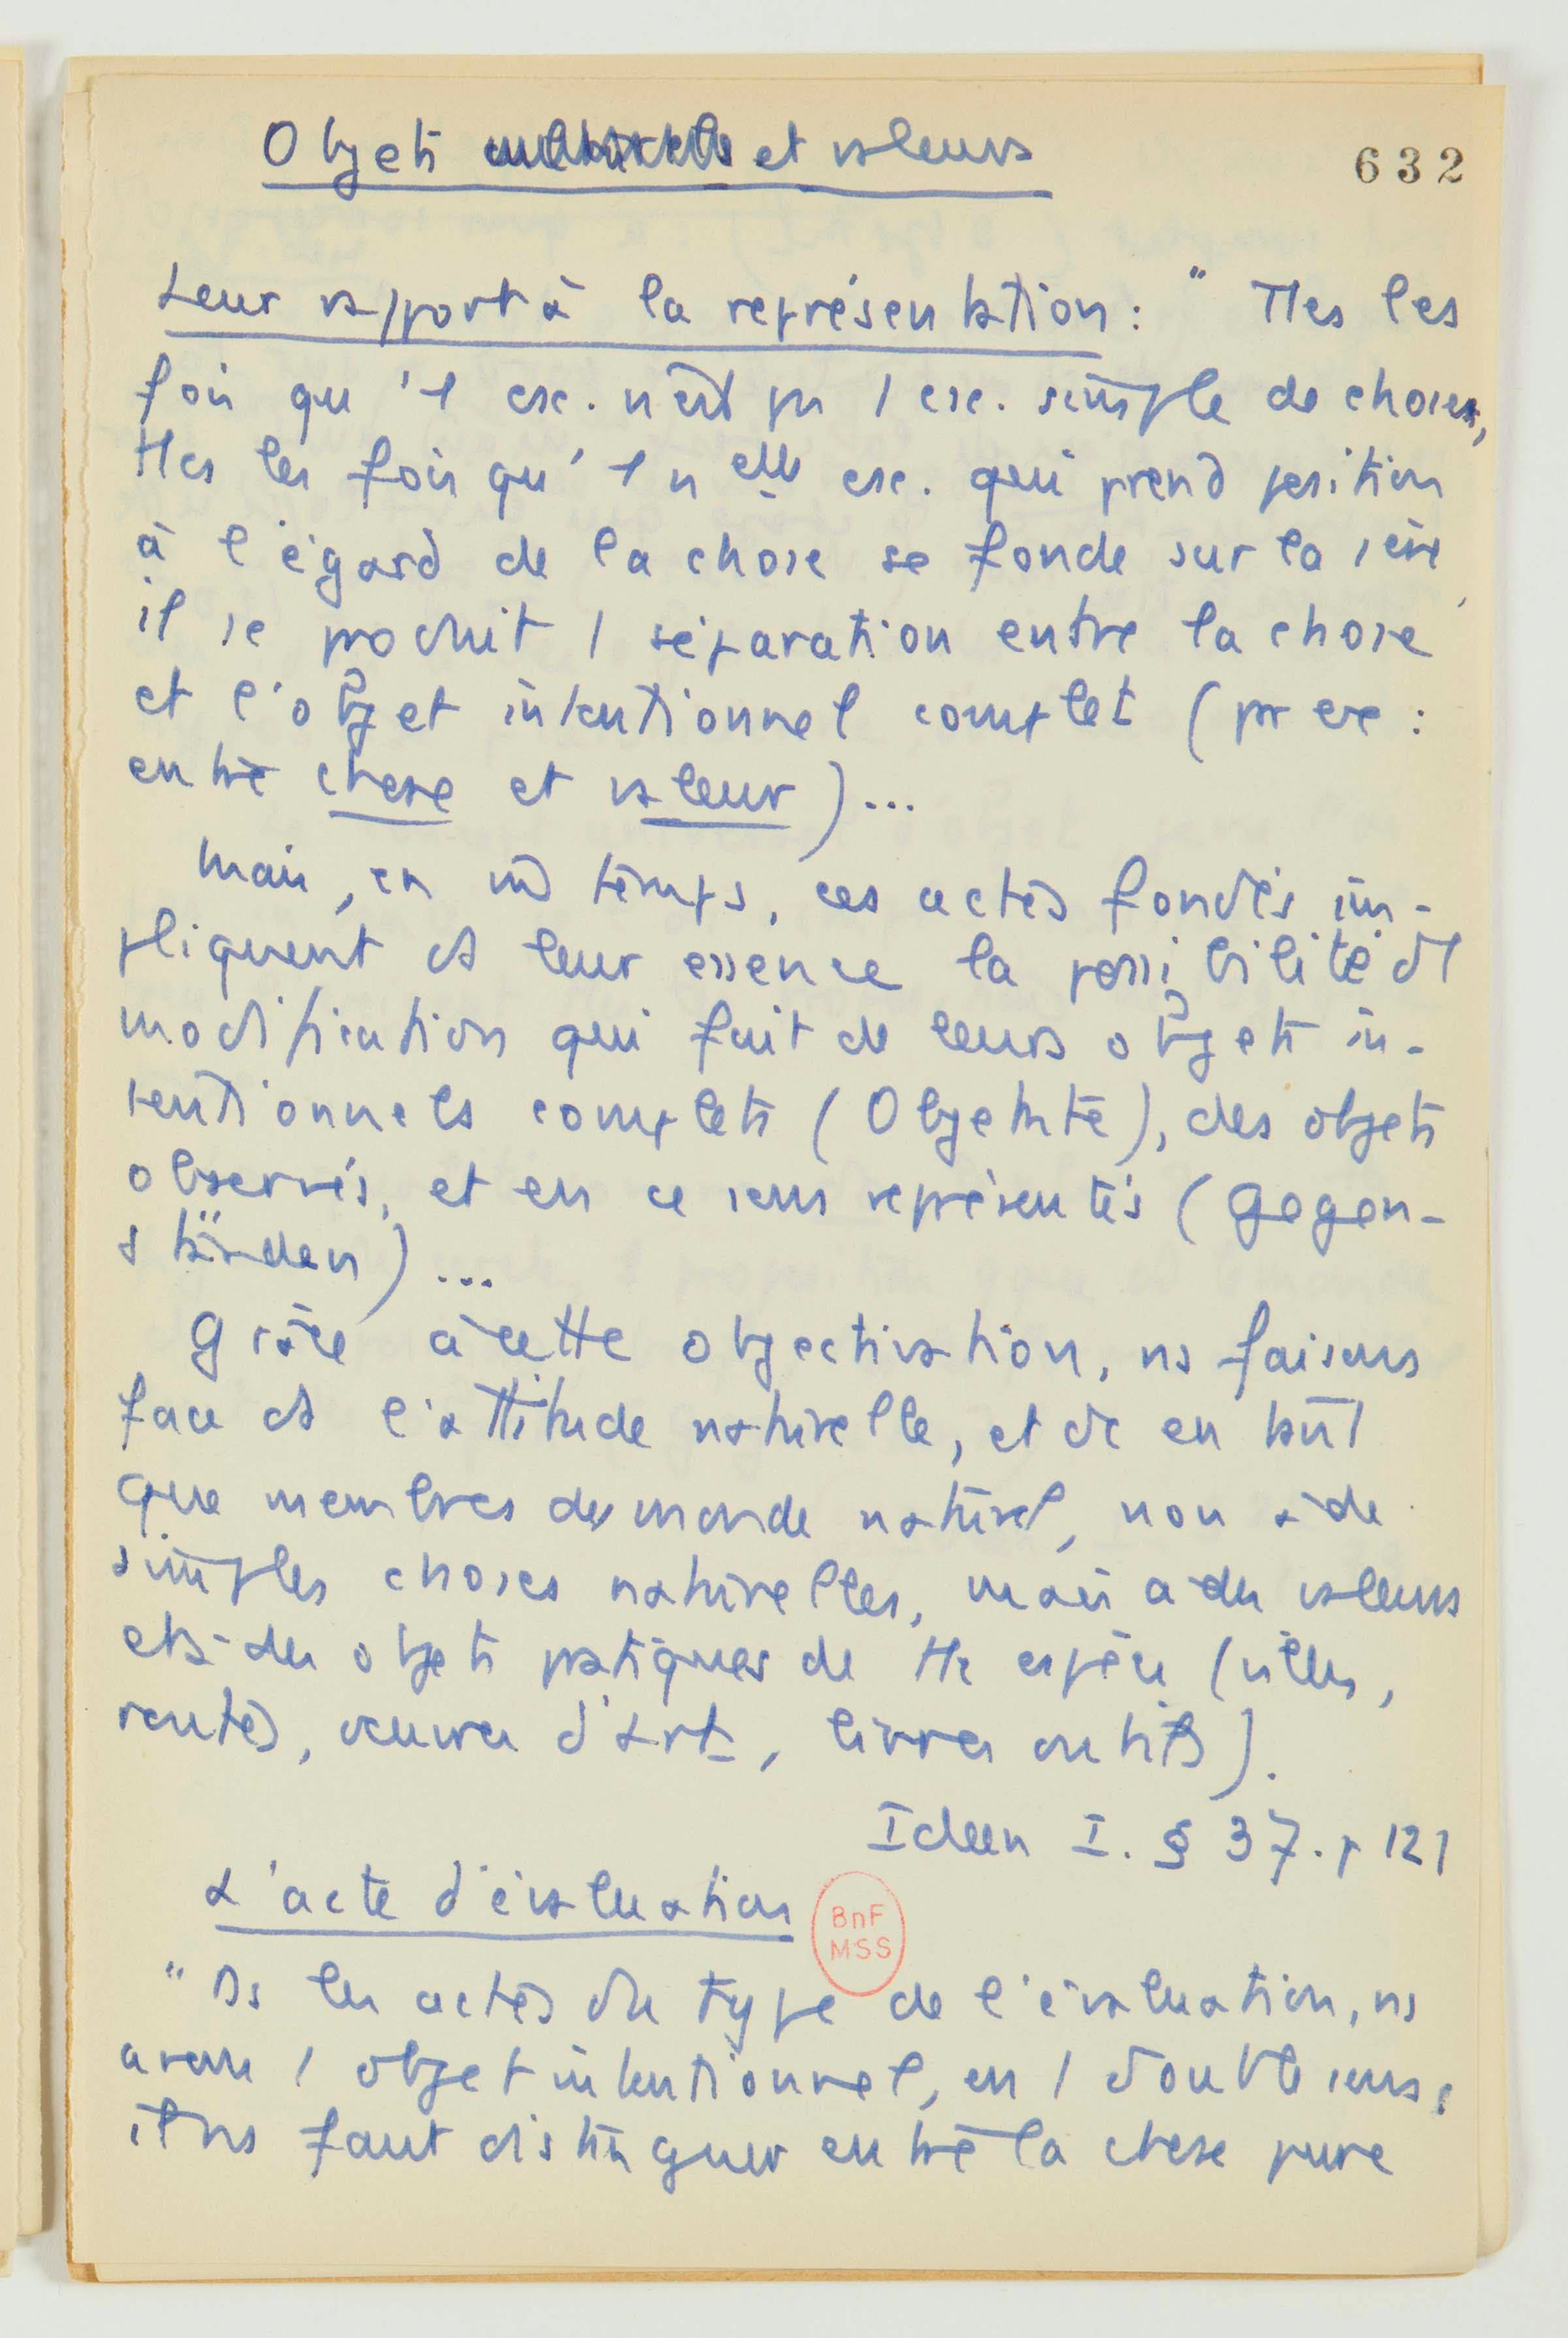 Objets culturels et valeurs
632
Leur rapport à la représentation : " Ttes les
fois qu'1 esc. n'est pas 1 esc. simple de choses,
ttes les fois qu'1 nelle esc. qui prend position
à l'égard de la chose se fonde sur la 1ère,
il se produit 1 séparation entre la chose
et l'objet intentionnel complet (par ex :
entre chose et valeur)...
Mais, en m temps, ces actes fondés im-
pliquent ds leur essence la possibilité d'1
modification qui fait de leurs objets in-
tentionnels complets (Objektität), des objets
observés, et en ce sens représentés (Gegen-
ständen)...
Grâce à cette objectivation, ns faisons
face ds l'attitude naturelle, et dc en tant
que membres du monde naturel, non à de
simples choses naturelles, mais à des valeurs
et à des objets pratiques de tte espèce (villes,
routes, oeuvres d'art, livres outils).
Ideen I. § 37. p 121
L'acte d'évaluation
BnF
MSS
" Ds les actes du type de l'évaluation, ns
avons 1 objet intentionnel, en 1 double sens ;
il ns faut distinguer entre la chose pure